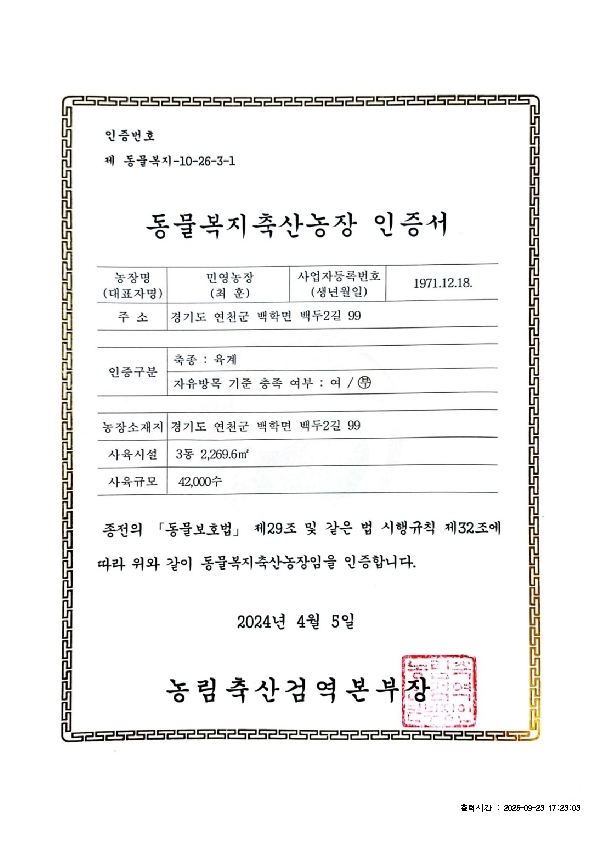 인증번호
제 동물복지-10-26-3-1
동물복지축산농장 인증서
농장명 민영농장 사업자등록번호 1971.12.18.
(대표자명) (최 훈) (생년월일)
주 소 경기도 연천군 백학면 백두2길 99
인증구분 축종 : 육계
자유방목 기준 충족 여부 : 여 / 부
농장소재지 경기도 연천군 백학면 백두2길 99
사육시설 3동 2,269.6㎡
사육규모 42,000수
종전의 「동물보호법」 제29조 및 같은 법 시행규칙 제32조에
따라 위와 같이 동물복지축산농장임을 인증합니다.
2024년 4월 5일
농림축산검역본부장
출력시간 : 2025-09-23 17:23:03